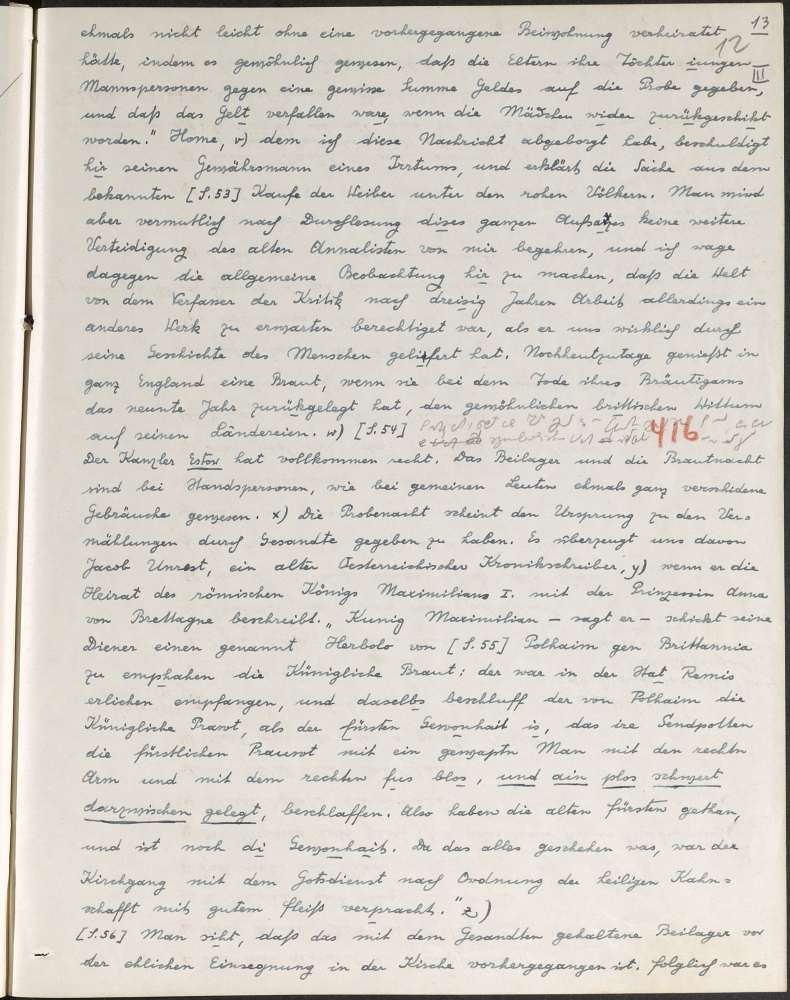 13
12
III
ehmals nicht leicht ohne eine vorhergegangene Beiwohnung verheiratet
hätte, indem es gewöhnlich gewesen, daß die Eltern ihre Töchter iungen
Mannspersonen gegen eine gewisse Summe Geldes auf die Probe gegeben,
und daß das Gelt verfallen ware, wenn die Mädchen wider zurükgeschikt
worden." Home, v) dem ich diese Nachricht abgeborgt habe, beschuldigt
hir seinen Gewährsmann eines Irrtums, und erklärt die Sache aus dem
bekannten [S.53] Kaufe der Weiber unter den rohen Völkern. Man wird
aber vermutlich nach Durchlesung dises ganzen Aufsatzes keine weitere
Verteidigung des alten Annalisten von mir begehren, und ich wage
dagegen die allgemeine Beobachtung hir zu machen, daß die Welt
von dem Verfasser der Kritik nach dreisig Jahren Arbeit allerdings ein
anderes Werk zu erwarten berechtiget war, als er uns wirklich durch
seine Geschichte des Menschen gelifert hat. Nochheutzutage genießt in
ganz England eine Braut, wenn sie bei dem Tode ihres Bräutigams
das neunte Jahr zurükgelegt hat, den gewöhnlichen brittischen Wittum
auf seinen Ländereien. w) [S.54]
416
Der Kanzler Estor hat vollkommen recht. Das Beilager und die Brautnacht
sind bei Standspersonen, wie bei gemeinen Leuten ehmals ganz verschidene
Gebräuche gewesen. x) Die Probenacht scheint den Ursprung zu den Ver=
mählungen durch Gesandte gegeben zu haben. Es überzeugt uns davon
Jacob Unrest, ein alter Oesterreichischer Kronikschreiber, y) wenn er die
Heirat des römischen Königs Maximilians I. mit der Prinzessin Anna
von Brettagne beschreibt. „Kunig Maximilian – sagt er – schickt seine
Diener einen genannt Herbolo von [S.55] Polhaim gen Brittannia
zu emphahen die Künigliche Braut: der war in der Stat Remis
erlichen empfangen, und daselbs beschluff der von Polhaim die
Künigliche Prawt, als der fürsten Gewonhait is, das ire Sendpotten
die fürstlichen Prauwt mit ein gewaptn Man mit den rechtn
Arm und mit dem rechten fus blos, und ain plos schwert
darzwischen gelegt, beschlaffen. Also haben die alten fürsten gethan,
und ist noch di Gewonhait. Da das alles geschehen was, war der
Kirchgang mit dem Gotsdienst nach Ordnung der heiligen Kahn=
schafft mit gutem fleiß verpracht." z)
[S.56] Man siht, daß das mit dem Gesandten gehaltene Beilager vor
der ehlichen Einsegnung in der Kirche vorhergegangen ist. folglich war es